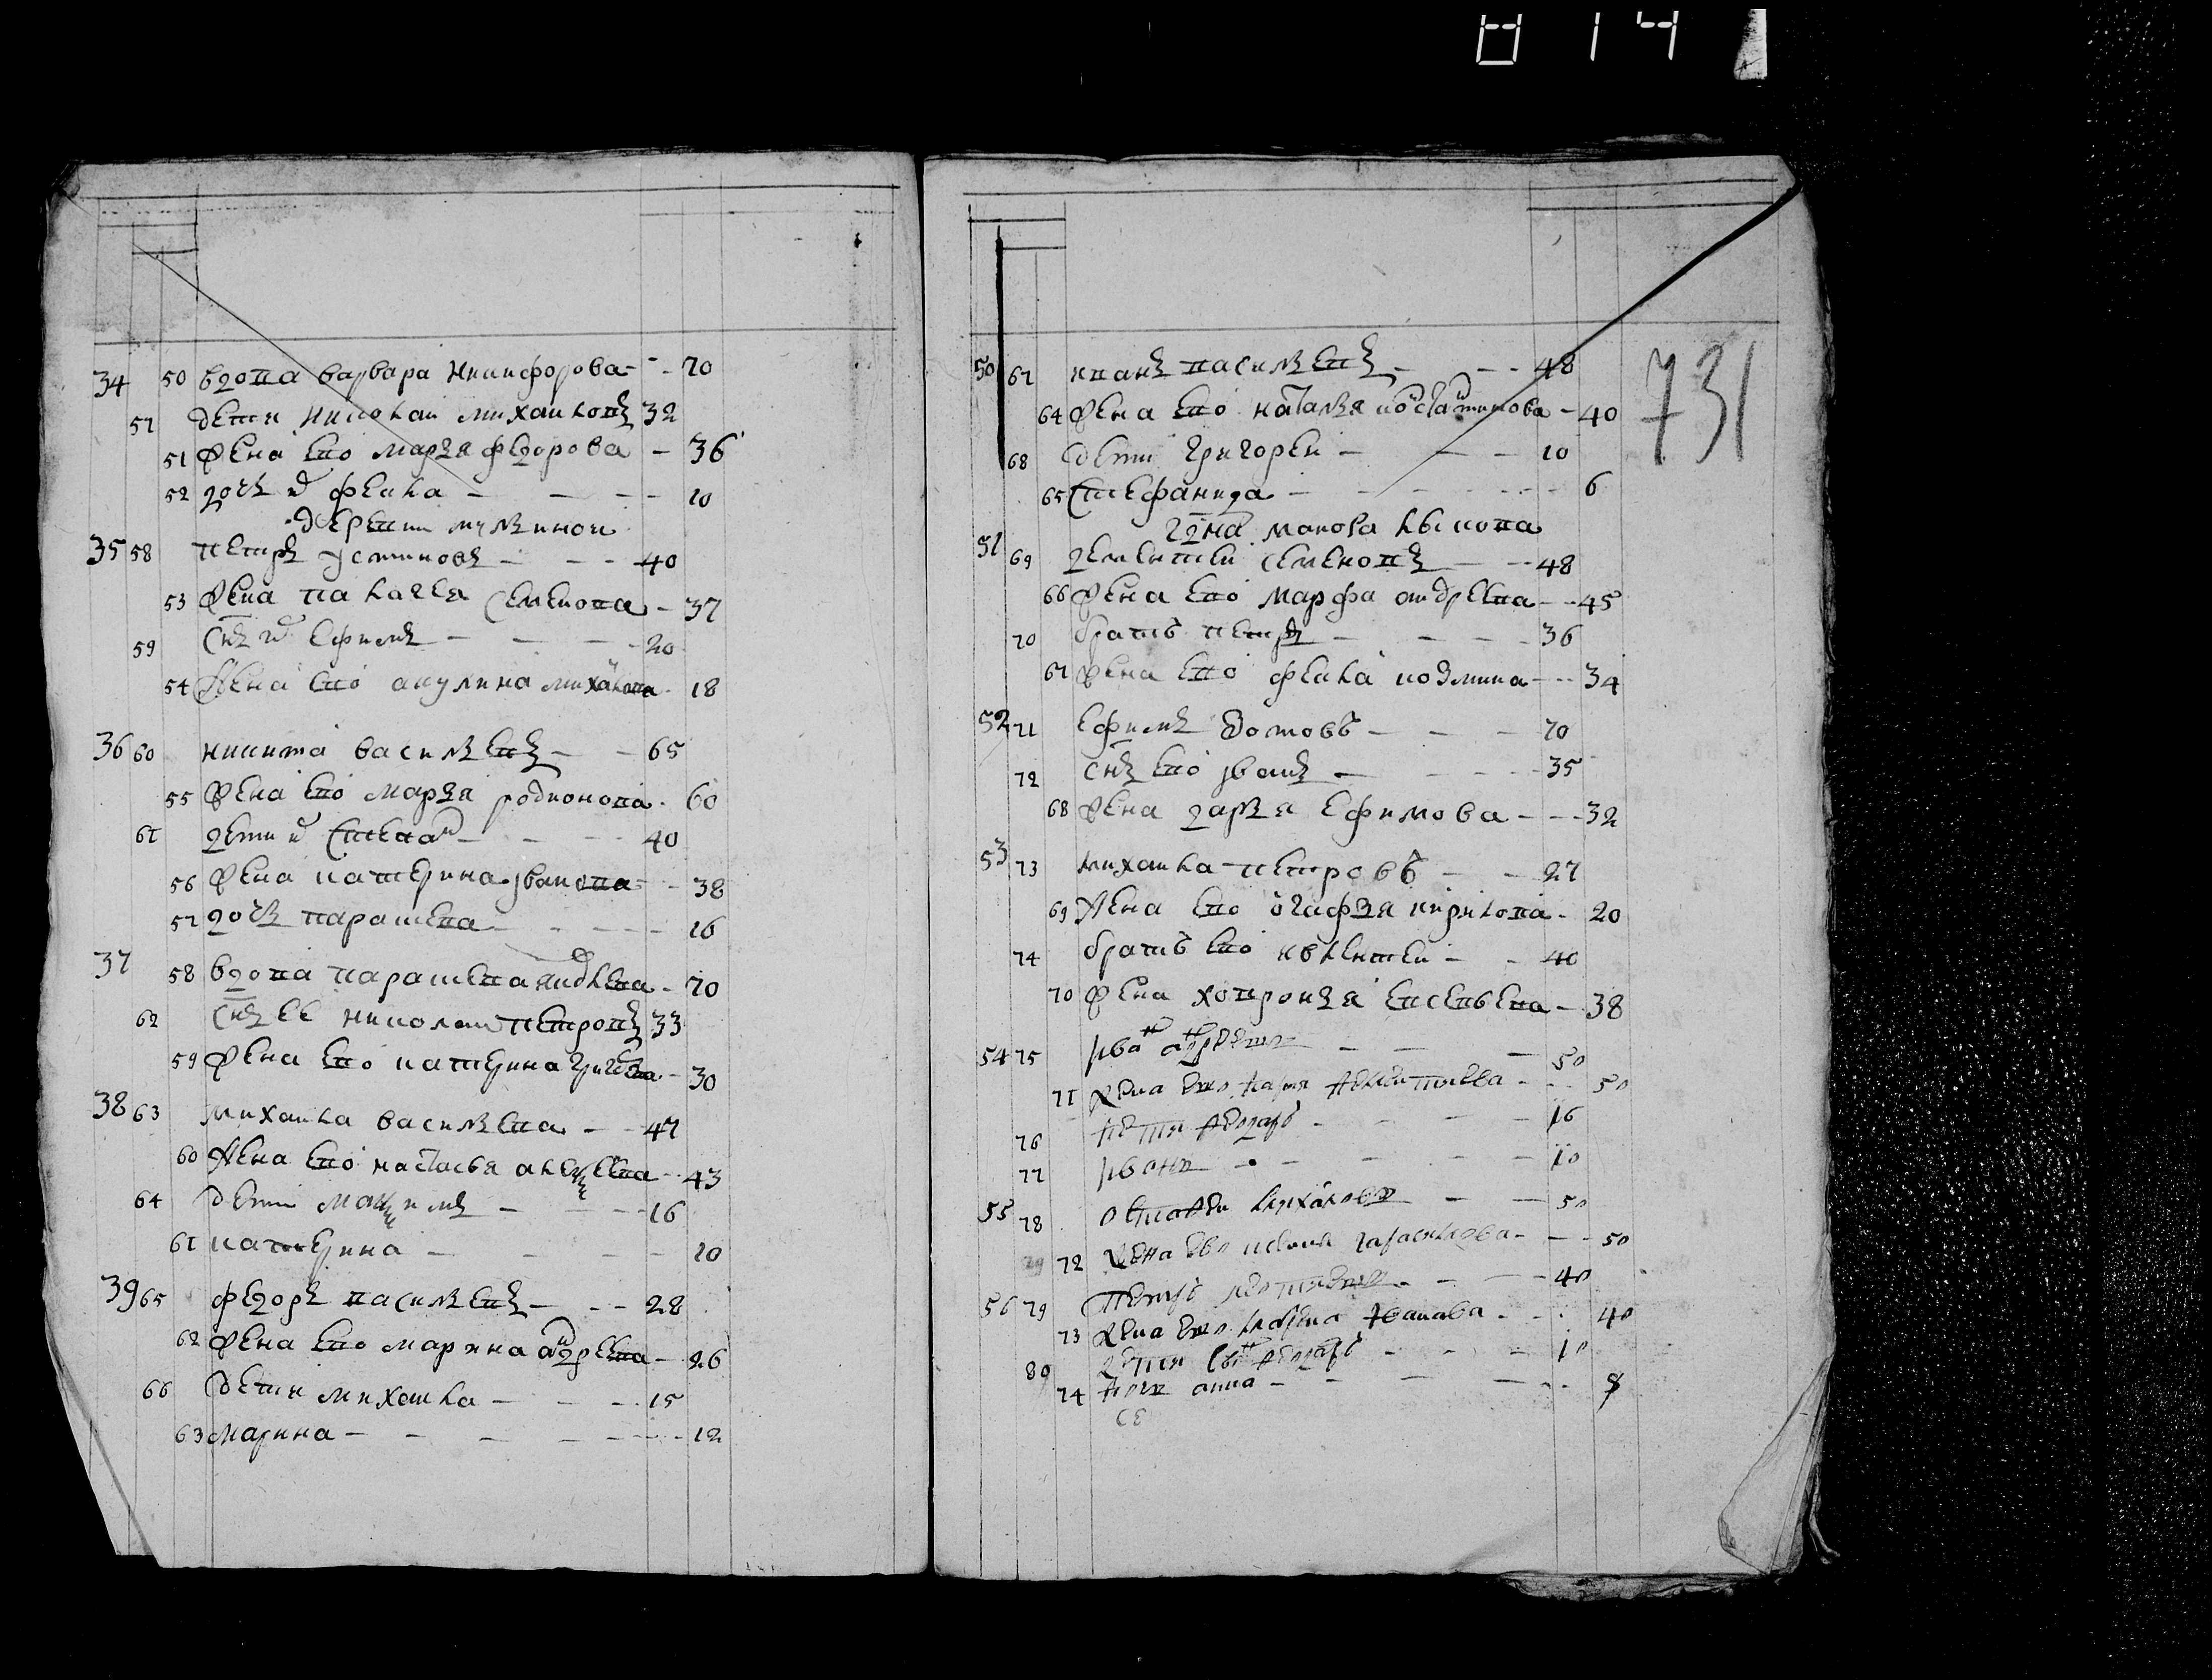 0 1 4
34 50 вдова варвара никифорова 70
57 дети николаи михаиловъ 32
51 жена ево марья федорова 36
52 дочь их фекла 10
деревни
35 58 петръ устиновъ 40
53 жена палагея семенова 37
59 снъ их ефимъ 20
54 жена ево акулина михаилова 18
36 60 никита васильевъ 65
55 жена ево марья родионова 60
61 дети их степан 40
56 жена катерина иванова 38
57 дочь парасковя 16
37 58 вдова 70
62 снъ ее николаи петровъ 33
59 жена ево катерина григева 30
38 63 михаила васильева 47
60 жена ево настасья алексеева 43
64 дети максимъ 16
61 катерина 10
39 65 федоръ васильевъ 28
62 жена ево марина андреева 26
66 дети михаила 15
63 марина 12
731
50 67 иванъ васильевъ 48
64 жена ево наталья костантинова 40
68 дети григореи 10
65 стефанида 6
51 69 дементеи семеновъ 48
66 жена ево марфа андреева 45
70 братъ петръ 36
67 жена ево фекла козмина 34
52 71 ефимъ 70
72 снъ ево иванъ 35
68 жена дарья ефимова 32
53 73 михаила петровъ 27
69 жена ево агафья кирилова 20
74 братъ ево 40
70 жена хавронья евсевьева 38
54 75 иван андреевъ 50
71 жена ево 50
76 дети федоръ 16
77 иванъ 10
55 78 михаиловъ 50
72 жена ево герасимова 50
56 79 петръ 40
73 жена ево иванова 40
80 дети сын федоръ 10
74 дочь анна 8